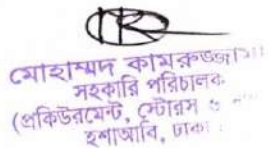 মোহাম্মদ কামরুজ্জামান
সহকারি পরিচালক
(প্রকিউরমেন্ট, স্টোরস ও
হশাআবি, ঢাকা